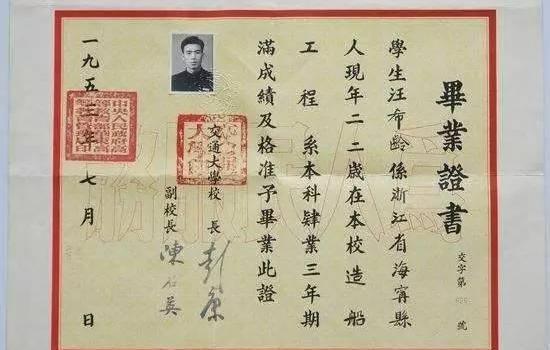 畢業證書
交字第 號
學生汪希齡係浙江省海寧縣
人現年二二歲在本校造船
工程系本科肄業三年期
滿成績及格准予畢業此證
交通大學校長 彭康
副校長 陳石英
一九五三年七月 日